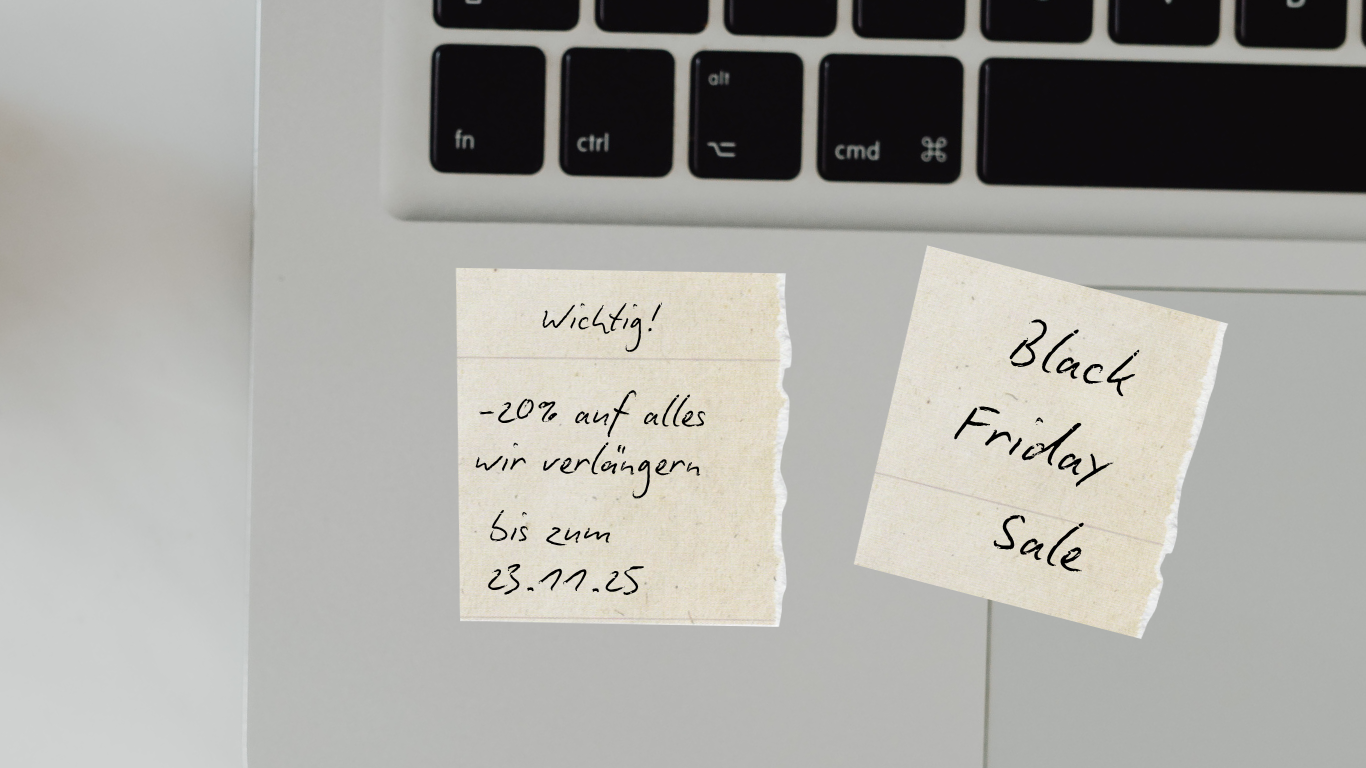 fn
ctrl
alt
⌥
cmd ⌘
Wichtig!
-20% auf alles
wir verlängern
bis zum
23.11.25
Black
Friday
Sale